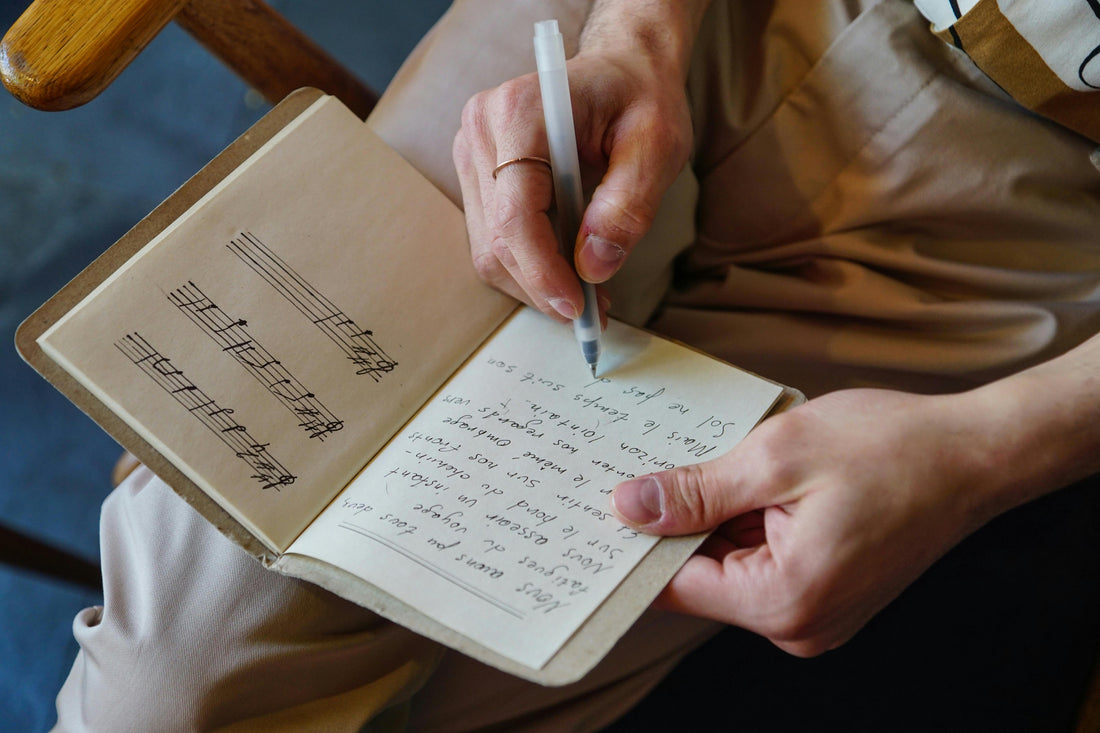 Nous aions pu tous deux,
fatigues du voyage
Nous asseoir un instant
Sur le bord du chemin-
Et sentir sur nos fronts
le même ombrage
nos regards vers
lointain.
Mais le temps suit son
Sol ne pas d